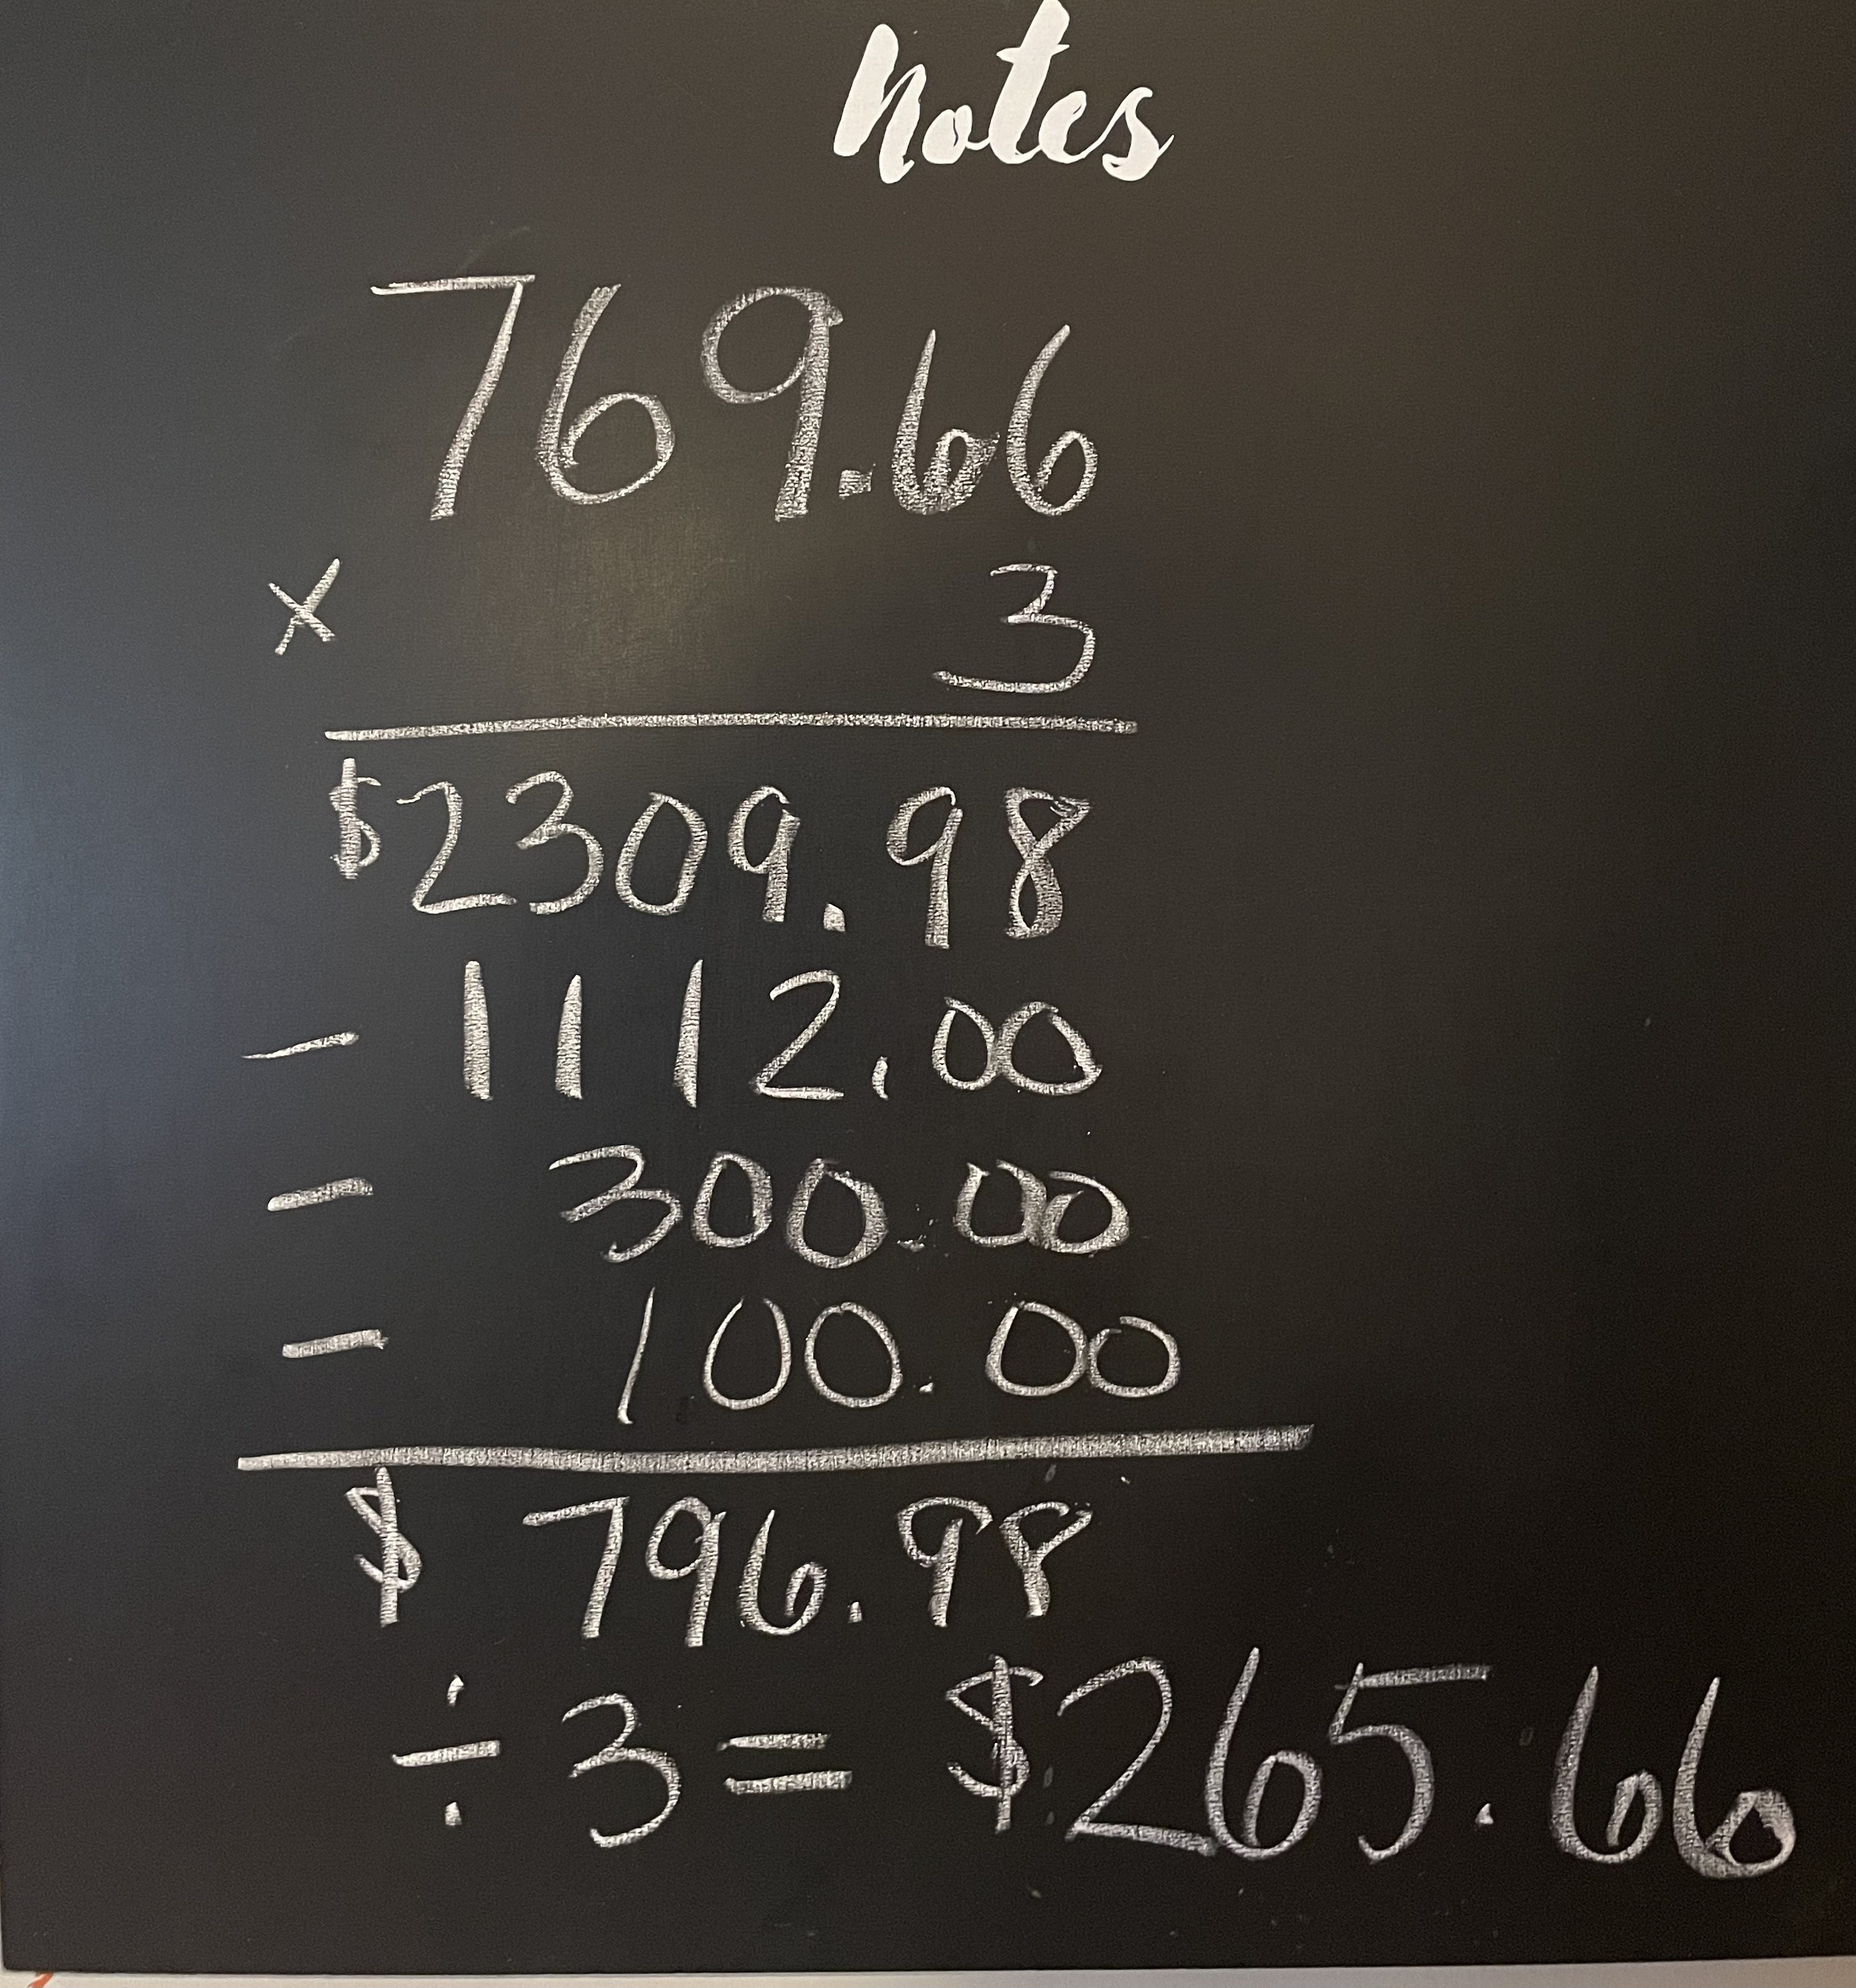 Notes
769.66
x 3
$2309.98
- 1112.00
- 300.00
- 100.00
$ 796.98
÷ 3 = $265.66